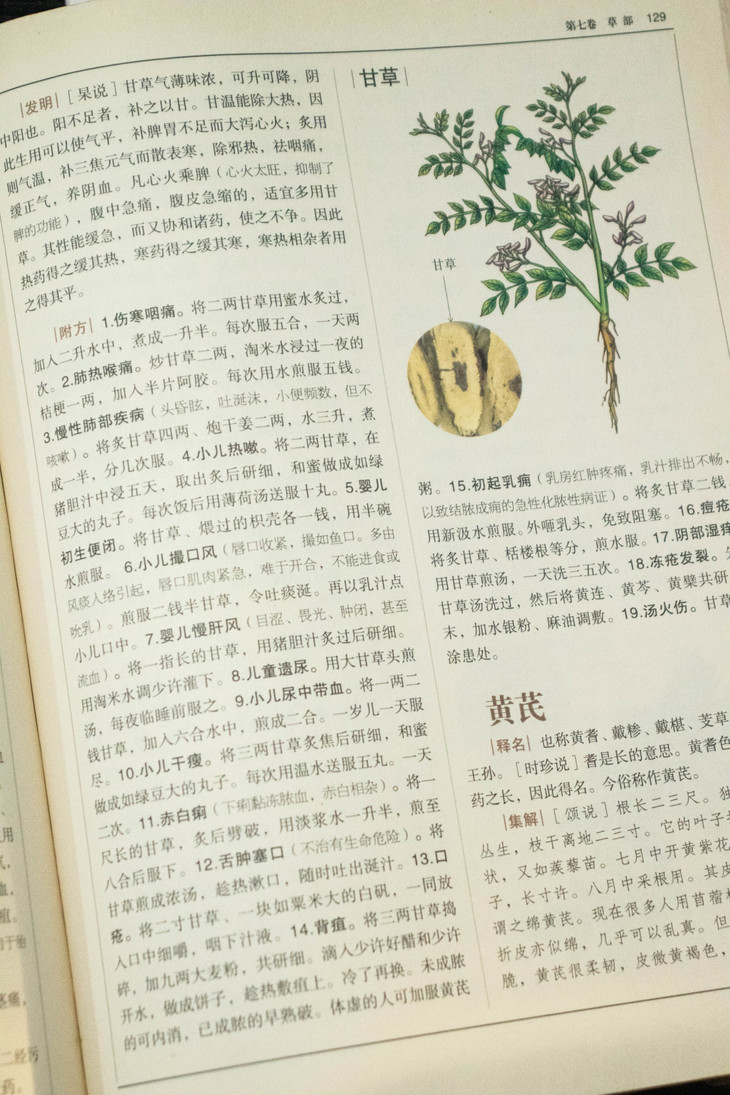 第七卷 草部 129
|发明| [杲说] 甘草气薄味浓，可升可降，阴
中阳也。阳不足者，补之以甘。甘温能除大热，因
此生用可以使气平，补脾胃不足而大泻心火；炙用
则气温，补三焦元气而散表寒，除邪热，祛咽痛，
缓正气，养阴血。凡心火乘脾（心火太旺，抑制了
脾的功能），腹中急痛，腹皮急缩的，适宜多用甘
草。其性能缓急，而又协和诸药，使之不争。因此
热药得之缓其热，寒药得之缓其寒，寒热相杂者用
之得其平。
|附方| 1.伤寒咽痛。将二两甘草用蜜水炙过，
加入二升水中，煮成一升半。每次服五合，一天两
次。2.肺热喉痛。炒甘草二两，淘米水浸过一夜的
桔梗一两，加入半片阿胶。每次用水煎服五钱。
3.慢性肺部疾病（头昏眩，吐涎沫，小便频数，但不
咳嗽）。将炙甘草四两、炮干姜二两，水三升，煮
成一半，分几次服。4.小儿热嗽。将二两甘草，在
猪胆汁中浸五天，取出炙后研细，和蜜做成如绿
豆大的丸子。每次饭后用薄荷汤送服十丸。5.婴儿
初生便闭。将甘草、煨过的枳壳各一钱，用半碗
水煎服。6.小儿撮口风（唇口收紧，撮如鱼口。多由
风痰入络引起，唇口肌肉紧急，难于开合，不能进食或
吮乳）。煎服二钱半甘草，令吐痰涎。再以乳汁点
小儿口中。7.婴儿慢肝风（目涩、畏光、肿闭，甚至
流血）。将一指长的甘草，用猪胆汁炙过后研细。
用淘米水调少许灌下。8.儿童遗尿。用大甘草头煎
汤，每夜临睡前服之。9.小儿尿中带血。将一两二
钱甘草，加入六合水中，煎成二合。一岁儿一天服
尽。10.小儿干瘦。将三两甘草炙焦后研细，和蜜
做成如绿豆大的丸子。每次用温水送服五丸。一天
二次。11.赤白痢（下痢黏冻脓血，赤白相杂）。将一
尺长的甘草，炙后劈破，用淡浆水一升半，煎至
八合后服下。12.舌肿塞口（不治有生命危险）。将
甘草煎成浓汤，趁热漱口，随时吐出涎汁。13.口
疮。将二寸甘草、一块如粟米大的白矾，一同放
入口中细嚼，咽下汁液。14.背疽。将三两甘草捣
碎，加九两大麦粉，共研细。滴入少许好醋和少许
开水，做成饼子，趁热敷疽上。冷了再换。未成脓
的可内消，已成脓的早熟破。体虚的人可加服黄芪
|甘草|
甘草
粥。15.初起乳痈（乳房红肿疼痛，乳汁排出不畅，
以致结脓成痈的急性化脓性病证）。将炙甘草二钱
用新汲水煎服。外咂乳头，免致阻塞。16.痘疮
将炙甘草、栝楼根等分，煎水服。17.阴部湿痒
用甘草煎汤，一天洗三五次。18.冻疮发裂。
甘草汤洗过，然后将黄连、黄芩、黄檗共研
末，加水银粉、麻油调敷。19.汤火伤。甘草
涂患处。
黄芪
|释名| 也称黄耆、戴糁、戴椹、芰草
王孙。[时珍说] 耆是长的意思。黄耆色
药之长，因此得名。今俗称作黄芪。
|集解| [颂说] 根长二三尺。独
丛生，枝干离地二三寸。它的叶子
状，又如蒺藜苗。七月中开黄紫花
子，长寸许。八月中采根用。其皮
谓之绵黄芪。现在很多人用苜蓿
折皮亦似绵，几乎可以乱真。但
脆，黄芪很柔韧，皮微黄褐色，